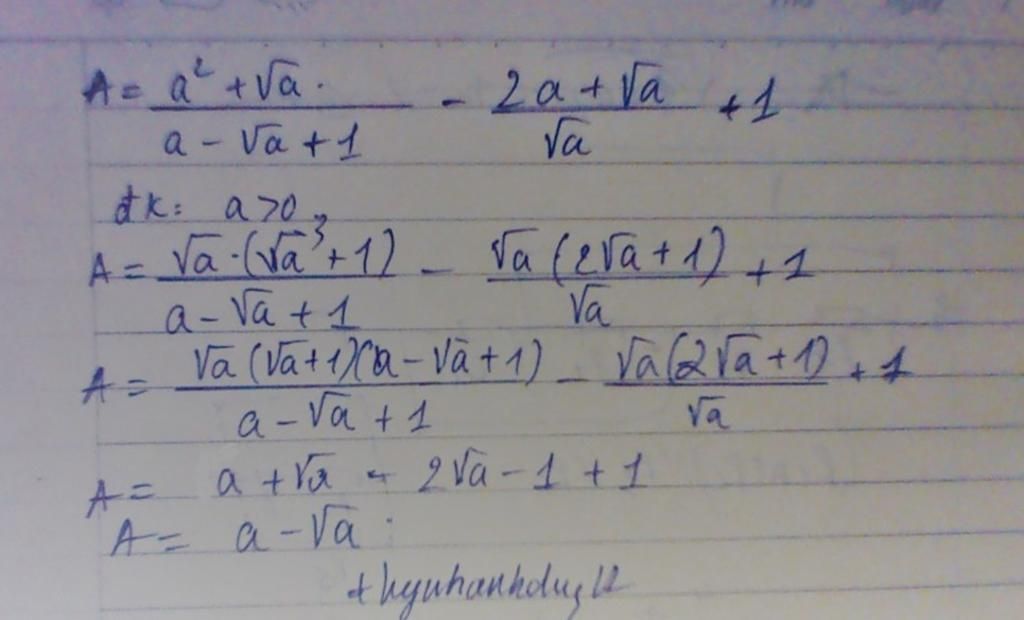 A = \frac{a² + √a}{a - √a + 1} - \frac{2a + √a}{√a} + 1
đk: a > 0
A = \frac{√a·(√a³ + 1)}{a - √a + 1} - \frac{√a(2√a + 1)}{√a} + 1
A = \frac{√a(√a + 1)(a - √a + 1)}{a - √a + 1} - \frac{√a(2√a + 1)}{√a} + 1
A = a + √a - 2√a - 1 + 1
A = a - √a